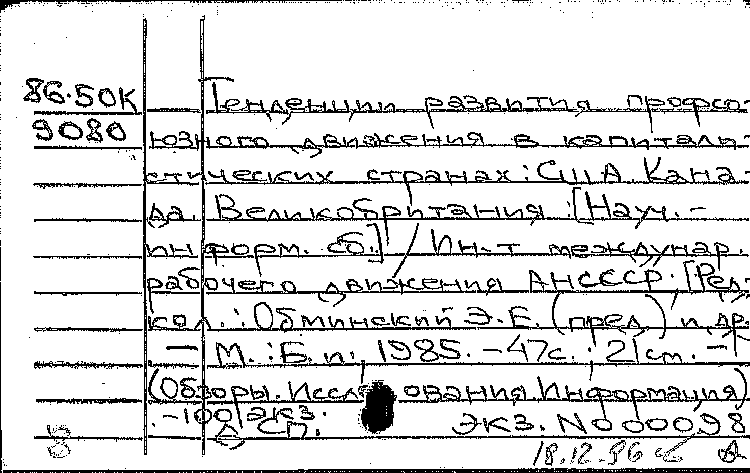 86-50К
9080
Тенденции развития профсо-
юзного движения в капитали-
стических странах: США, Кана-
да, Великобритания: [Науч.-
информ. сб.] / Ин-т междунар.
рабочего движения АН СССР; [Ред.
кол.: Обминский Э.Е. (пред.) и др.]
— М.: Б.и., 1985. — 47с.; 21 см. —
(Обзоры. Исследования. Информация)
. — 100 экз.
СП. экз. N 000098
18.12.86